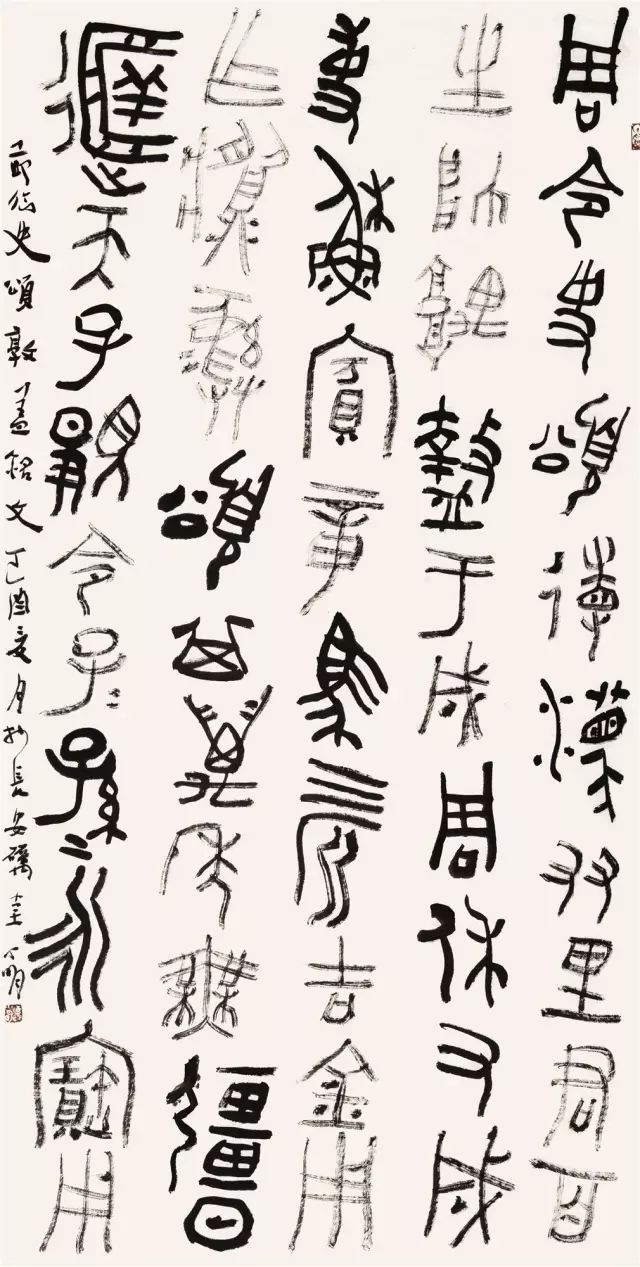 周令史頌友里君百
生帥盩于成周休又成
事蘇賓章馬三匹吉金用
乍彝頌其萬年無疆日
天子令子=孫=永寶用
節臨史頌敦蓋銘文丁酉夏月於長安